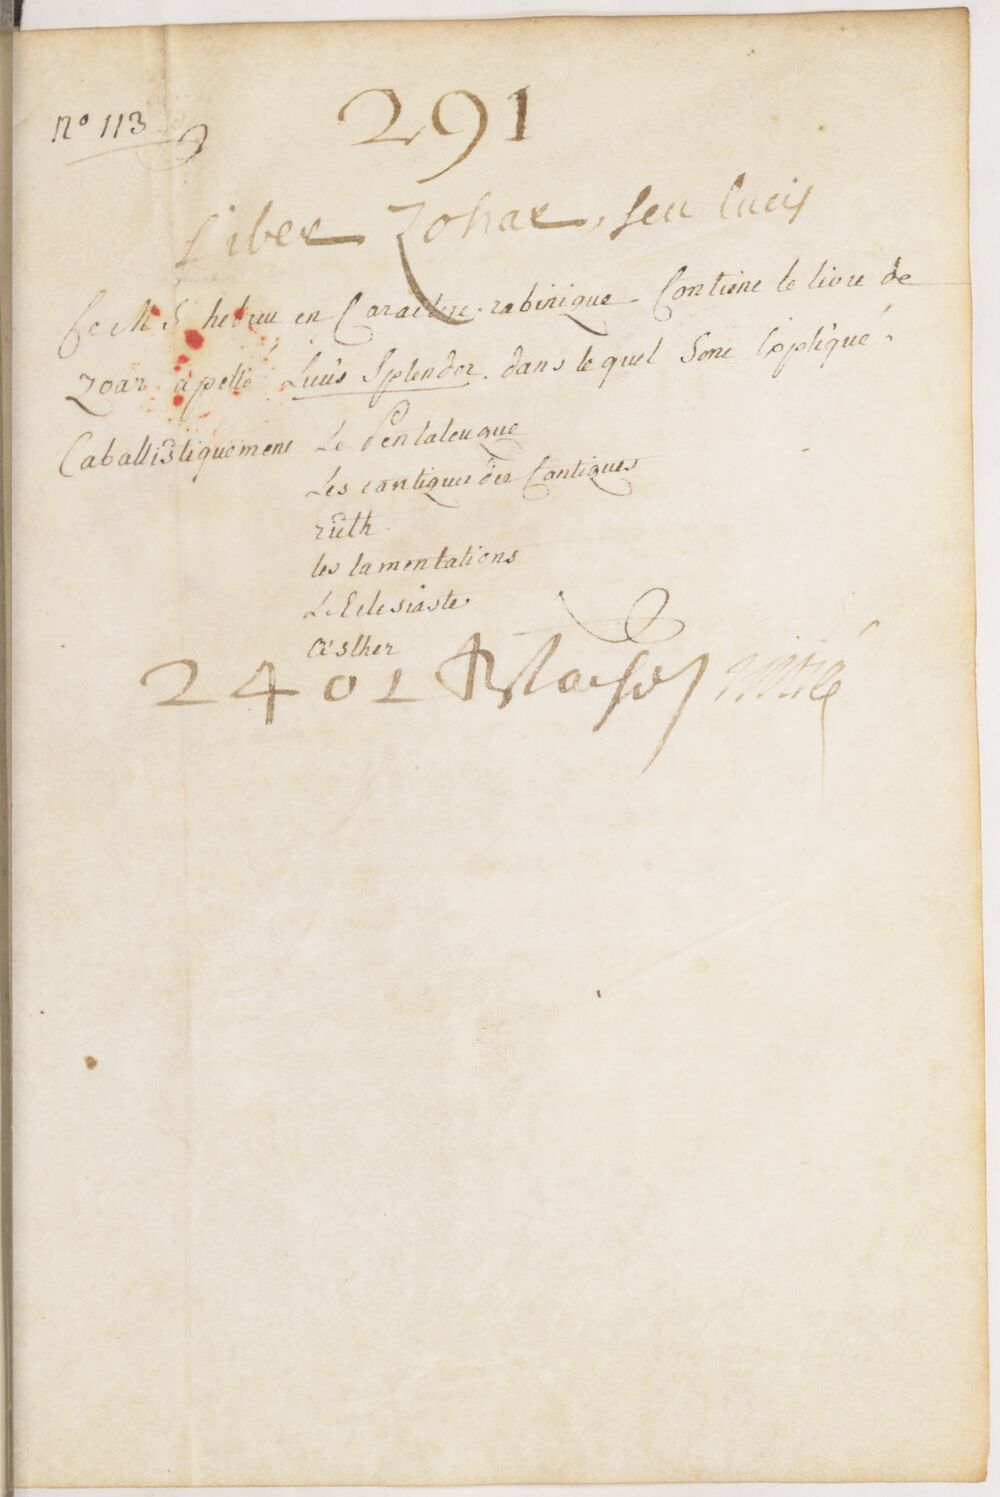 nº 113
291
Liber Zohar, seu lucis
Ce MS hebreu en Caractere rabinique. Contient le livre de
zoar apellé Lucis Splendor. dans lequel Sont Expliqué
Caballistiquement Le Pentateuque
Les cantique des Cantiques
ruth
les lamentations
L'Eclesiaste
esther
2401